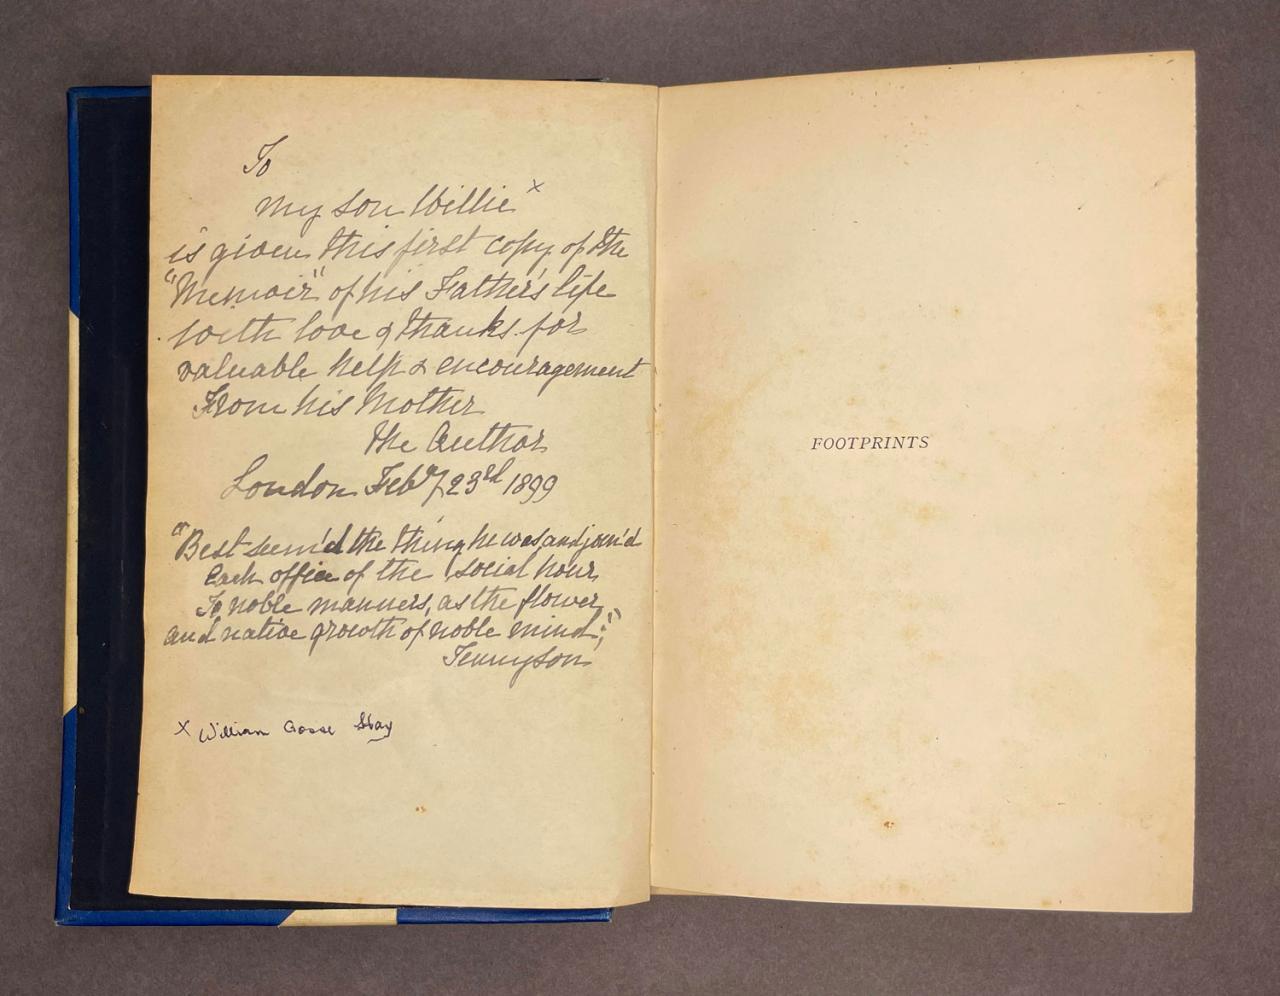 To
my son Willie x
is given this first copy of the
"Memoir" of his Father's life
with love & thanks for
valuable help & encouragement
From his Mother
The Author
London Feby 23rd 1899
"Best seem'd the thing he was and join'd
Each office of the social hour
To noble manners, as the flower
and native growth of noble mind;"
Tennyson
x William Gosse Hay
FOOTPRINTS